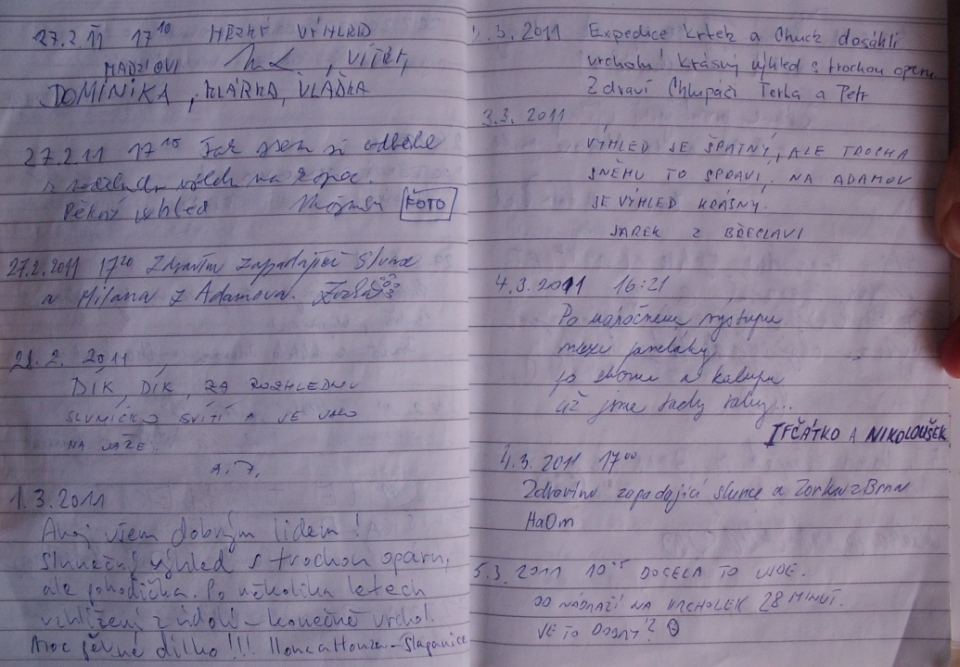 27.2.11 17¹⁰ HEZKÝ VÝHLED
MADZIOVI , VÍTEK,
DOMINIKA, KLÁRKA, VLAĎKA
27.2.11 17¹⁵ Tak jsem si odběhl
výlet na kopec!
Pěkný výhled FOTO
27.2.2011 17²⁰ Zdravím zapadající slunce
a Milana z Adamova.
28.2. 2011
DÍK, DÍK, ZA ROZHLEDNU
SLUNÍČKO SVÍTÍ A JE JAKO
NA JAŘE.
A. J.
1.3.2011
Ahoj všem dobrým lidem!
Slunečný výhled s trochou oparu,
ale pohodička. Po několika letech
vzhlížení z údolí - konečně vrchol.
Moc pěkné dílko!!! Ilonca Honza - Šlapanice
.3. 2011 Expedice krtek a Chuck dosáhli
vrcholu! krásný výhled s trochou oparu
Zdraví Chlupáči Terka a Petr
3.3. 2011
VÝHLED JE ŠPATNÝ, ALE TROCHA
SNĚHU TO SPRAVÍ. NA ADAMOV
JE VÝHLED KRÁSNÝ.
JAREK Z BŘECLAVI
4.3.2011 16:21
Po náročném výstupu
mezi paneláky
už jsme tady taky...
IFČÁTKO A NIKOLOUŠEK
4.3. 2011 17⁰⁰
Zdravíme zapadající slunce a Zorku z Brna
HaOm
5.3. 2011 DOCELA TO UJDE.
OD NÁDRAŽÍ NA VRCHOLEK 28 MINUT.
JE TO DOBRÝ?